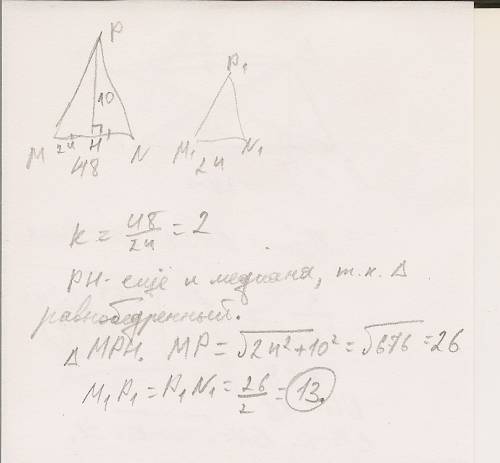 P
P₁
10
M 24 H N
48
M₁ N₁
24
k = 48/24 = 2
PH - ещё и медиана, т.к. Δ
равнобедренный.
Δ MPH. MP = √24² + 10² = √676 = 26
M₁P₁ = P₁N₁ = 26/2 = 13.